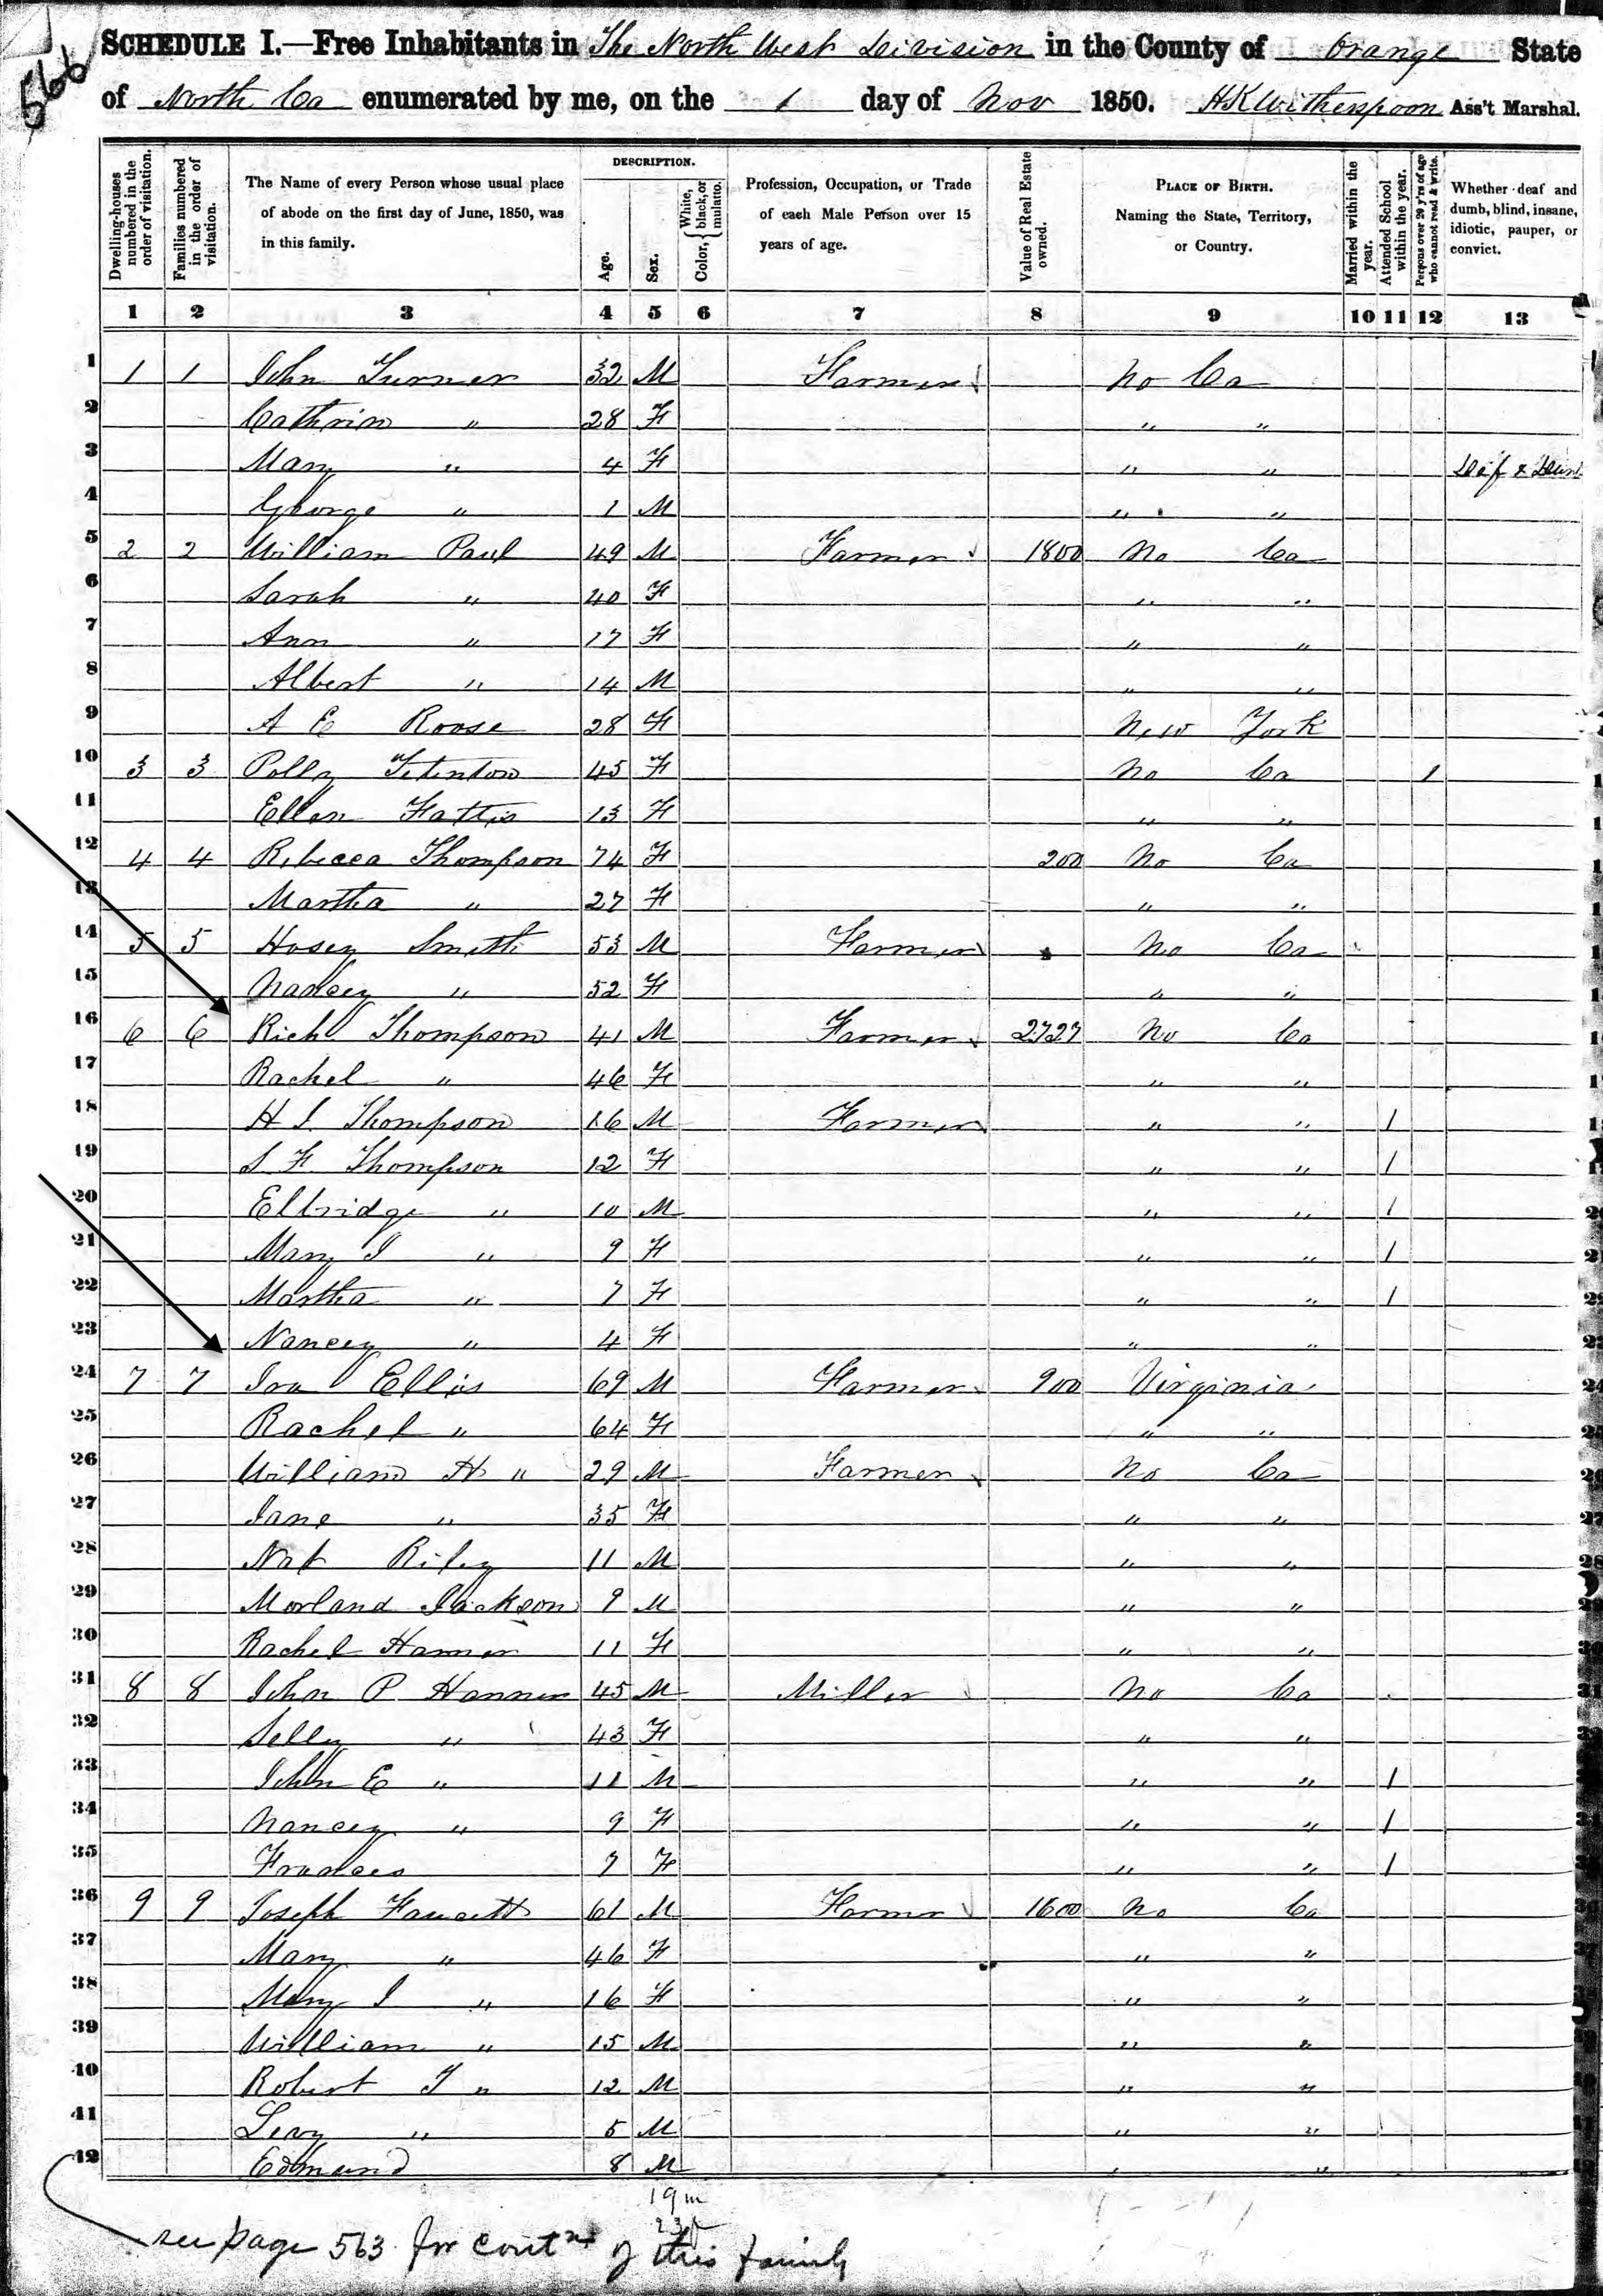 566
SCHEDULE I.—Free Inhabitants in The North West Division in the County of Orange State
of North Ca enumerated by me, on the 1 day of Nov 1850. H K Witherspoon Ass't Marshal.
Dwelling-houses numbered in the order of visitation.
Families numbered in the order of visitation.
The Name of every Person whose usual place of abode on the first day of June, 1850, was in this family.
DESCRIPTION.
Age.
Sex.
Color, { White, black, or mulatto.
Profession, Occupation, or Trade of each Male Person over 15 years of age.
Value of Real Estate owned.
PLACE OF BIRTH. Naming the State, Territory, or Country.
Married within the year.
Attended School within the year.
Persons over 20 y'rs of age who cannot read & write.
Whether deaf and dumb, blind, insane, idiotic, pauper, or convict.
1 2 3 4 5 6 7 8 9 10 11 12 13
1 1 1 John Turner 32 M Farmer No Ca
2 Cathrin " 28 F " "
3 Mary " 4 F " " Deif & Dum
4 George " 1 M " "
5 2 2 William Paul 49 M Farmer 1800 No Ca
6 Sarah " 40 F " "
7 Ann " 17 F " "
8 Albert " 14 M " "
9 A E Roose 28 F New York
10 3 3 Polly 45 F No Ca 1
11 Ellen 13 F " "
12 4 4 Rebecca Thompson 74 F 200 No Ca
13 Martha " 27 F " "
14 5 5 Hosey Smith 53 M Farmer No Ca
15 Nancey " 52 F " "
16 6 6 Rich Thompson 41 M Farmer 2727 No Ca
17 Rachel " 46 F " "
18 H I Thompson 16 M Farmer " " 1
19 S F Thompson 12 F " " 1
20 Elbridge " 10 M " " 1
21 Mary I " 9 F " " 1
22 Martha " 7 F " " 1
23 Nancey " 4 F " "
24 7 7 Ira Ellis 69 M Farmer 900 Virginia
25 Rachel " 64 F " "
26 William H " 29 M Farmer No Ca
27 Jane " 35 F " "
28 Nat Riley 11 M " "
29 Morland Jackson 9 M " "
30 Rachel Hanner 11 F " "
31 8 8 John P Hanner 45 M Miller No Ca
32 Selly " 43 F " "
33 John E " 11 M " " 1
34 Nancey " 9 F " " 1
35 Frances 7 F " " 1
36 9 9 Joseph Faucett 61 M Farmer 1600 No Ca
37 Mary " 46 F " "
38 Mary I " 16 F " "
39 William " 15 M " "
40 Robert T " 12 M " "
41 Levy " 5 M " "
42 Edmund 8 M " "
19 m
23 f
see page 563 for cont'n of this family